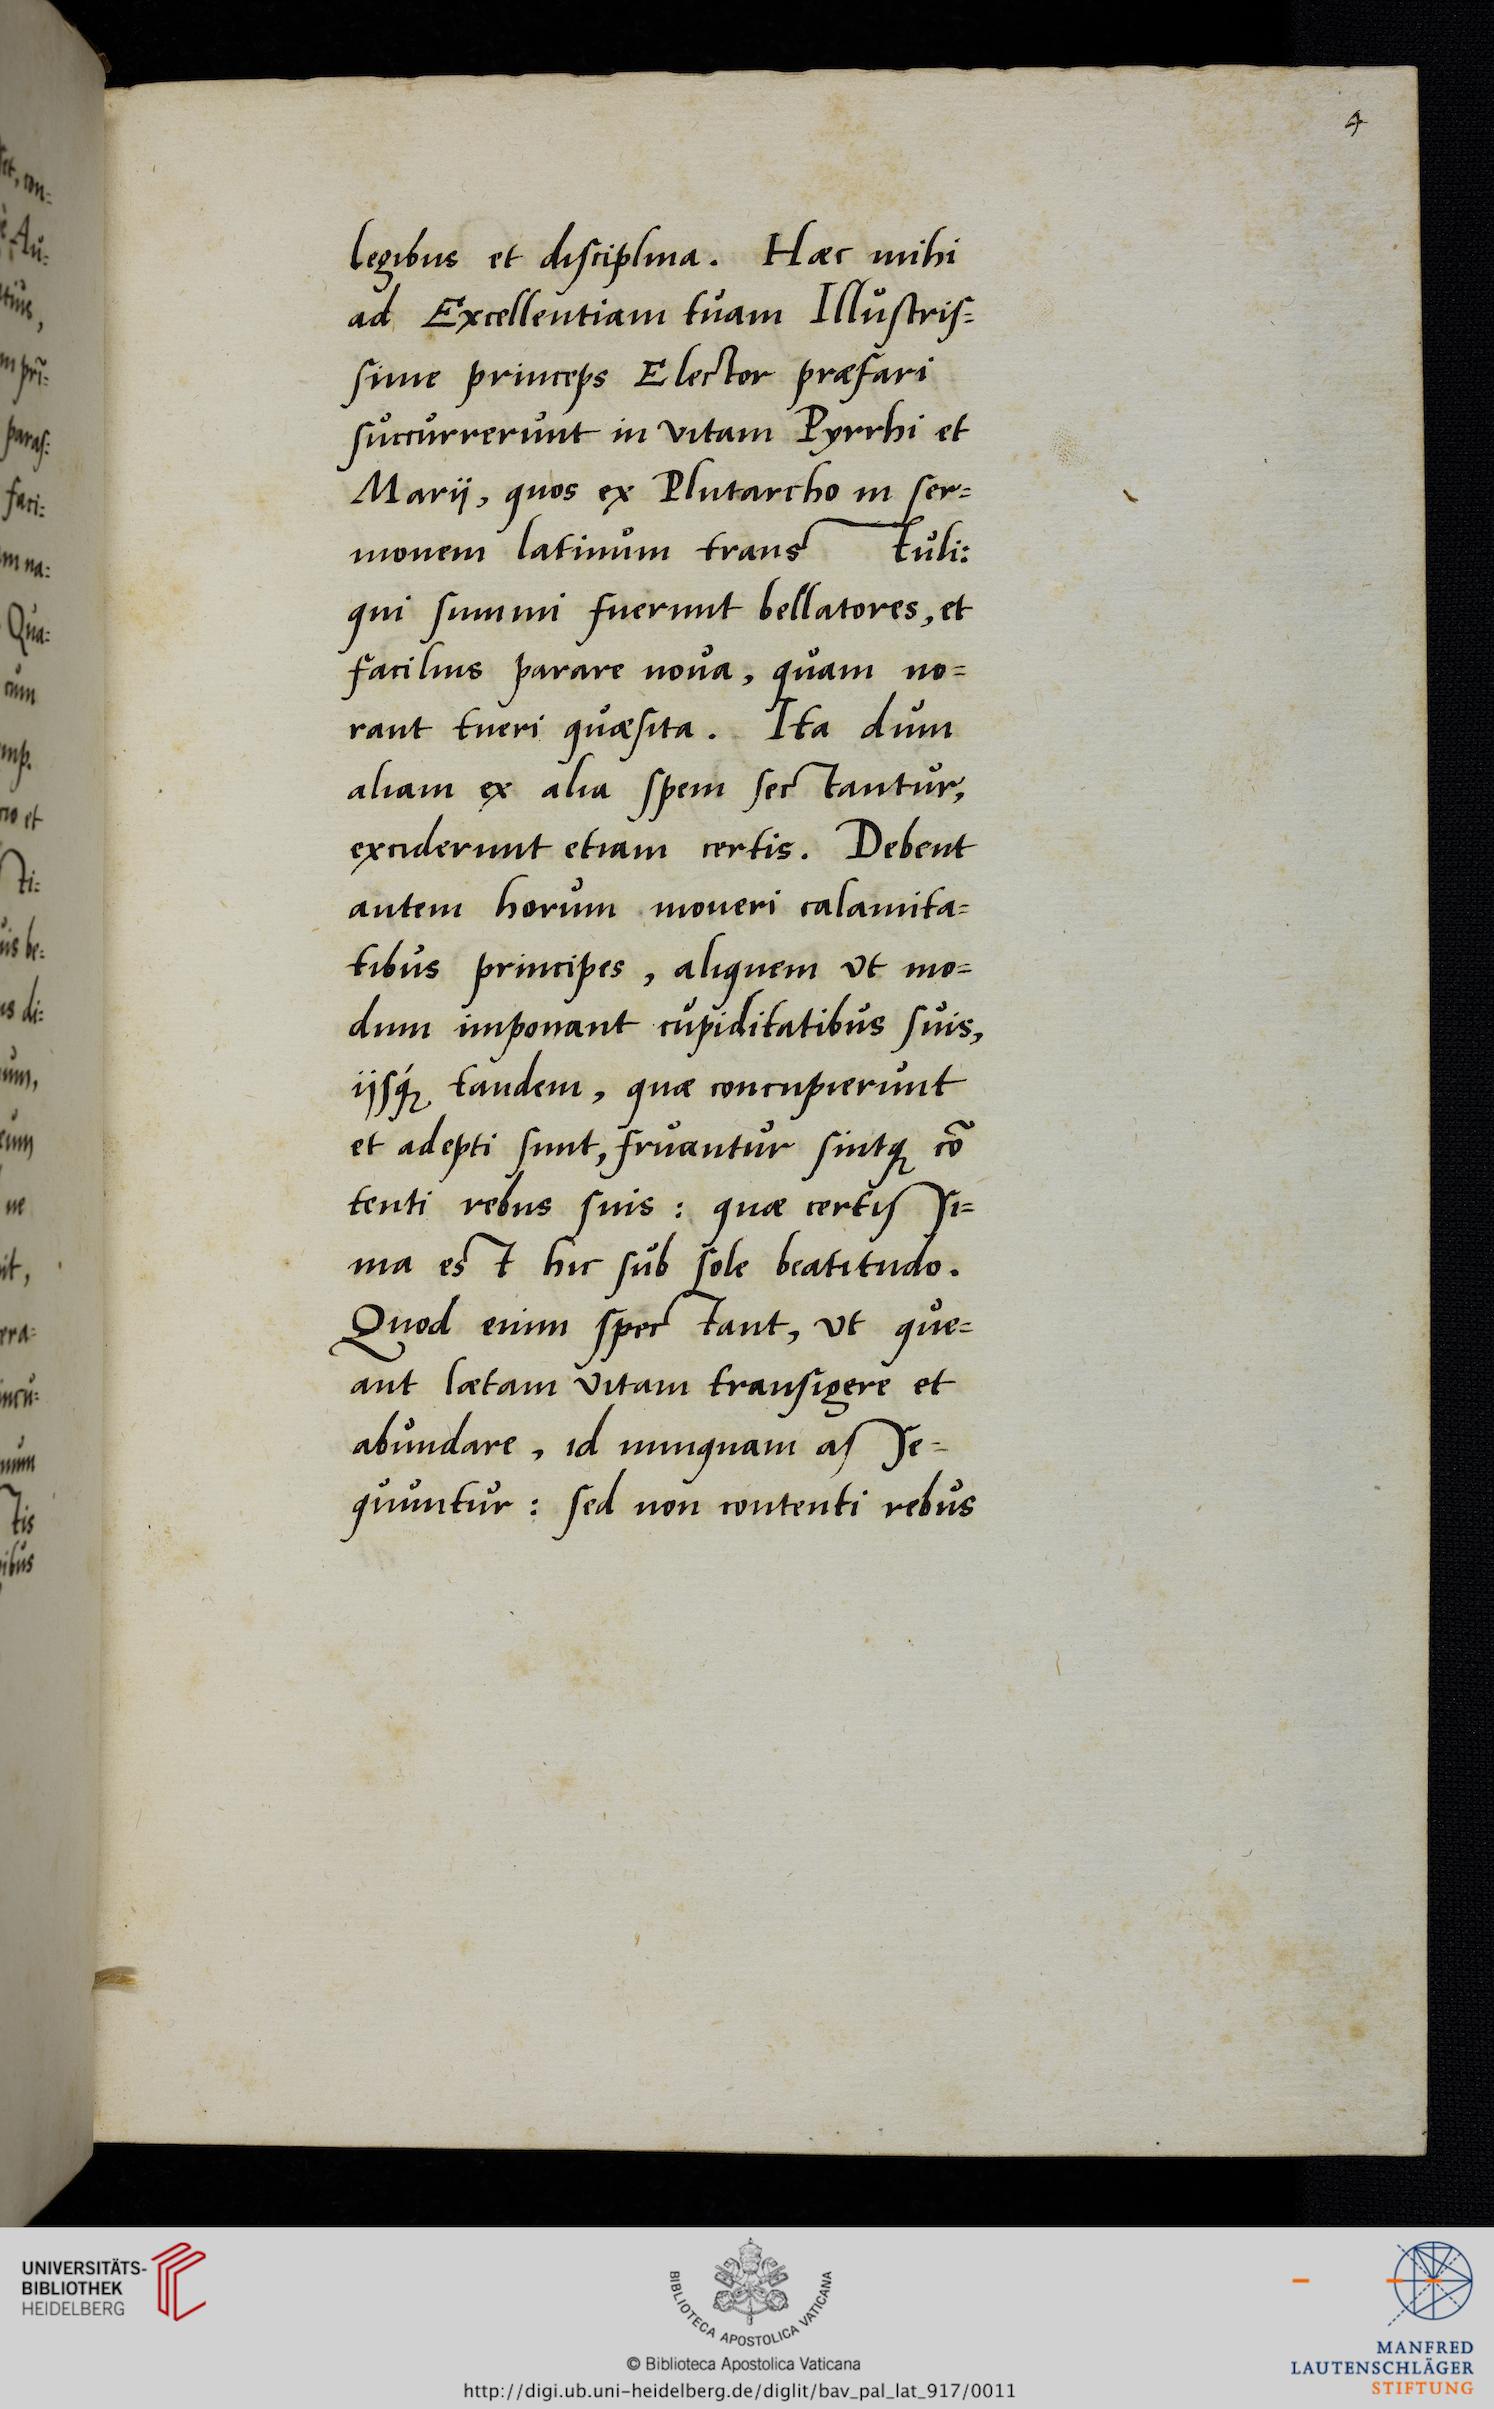 4
legibus et disciplina. Hæc mihi
ad Excellentiam tuam Illustris=
sime princeps Elector præfari
succurrerunt in vitam Pyrrhi et
Marij, quos ex Plutarcho in ser=
monem latinum transtuli:
qui summi fuerunt bellatores, et
facilius parare nova, quam no=
rant tueri quæsita. Ita dum
aliam ex alia spem sectantur,
exciderunt etiam certis. Debent
autem horum moveri calamita=
tibus principes, aliquem vt mo=
dum imponant cupiditatibus suis,
ijsq́; tandem, quæ concupierunt
et adepti sunt, fruantur sintq; cõ
tenti rebus suis: quæ certissi=
ma est hic sub sole beatitudo.
Quod enim spectant, vt que=
ant lætam vitam transigere et
abundare, id nunquam asse=
quuntur: sed non contenti rebus
UNIVERSITÄTS-
BIBLIOTHEK
HEIDELBERG
BIBLIOTECA APOSTOLICA VATICANA
© Biblioteca Apostolica Vaticana
http://digi.ub.uni-heidelberg.de/diglit/bav_pal_lat_917/0011
MANFRED
LAUTENSCHLÄGER
STIFTUNG